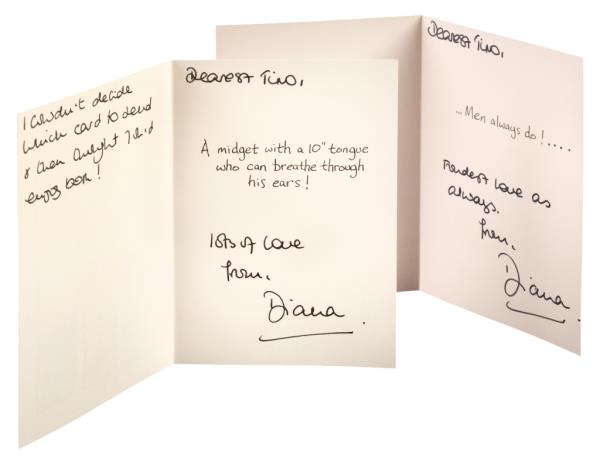 I couldn't decide
which card to send
& then thought I'd
enjoy both!
Dearest Tino,
A midget with a 10" tongue
who can breathe through
his ears!
lots of love
from,
Diana.
Dearest Tino,
...Men always do!....
Fondest love as
always.
from,
Diana.